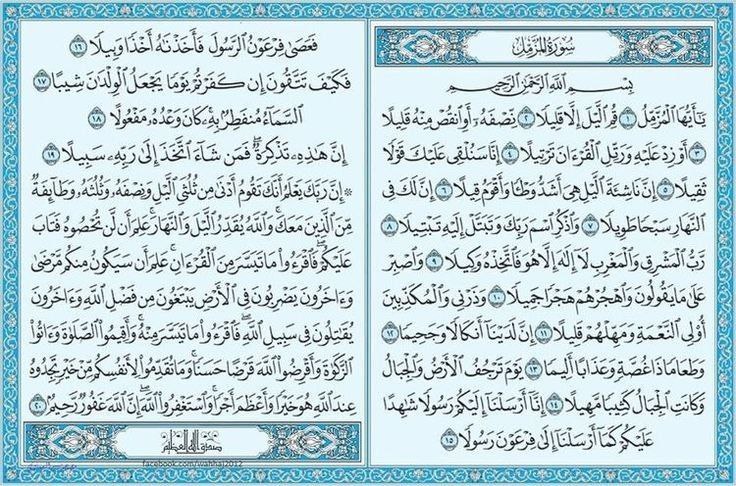 سُورَةُ المُزَّمِّلِ
بِسْمِ اللَّهِ الرَّحْمَٰنِ الرَّحِيمِ
يَٰٓأَيُّهَا الْمُزَّمِّلُ ١ قُمِ الَّيْلَ إِلَّا قَلِيلًا ٢ نِّصْفَهُۥٓ أَوِ انقُصْ مِنْهُ قَلِيلًا
٣ أَوْ زِدْ عَلَيْهِ وَرَتِّلِ الْقُرْءَانَ تَرْتِيلًا ٤ إِنَّا سَنُلْقِى عَلَيْكَ قَوْلًا
ثَقِيلًا ٥ إِنَّ نَاشِئَةَ الَّيْلِ هِىَ أَشَدُّ وَطْـًٔا وَأَقْوَمُ قِيلًا ٦ إِنَّ لَكَ فِى
النَّهَارِ سَبْحًا طَوِيلًا ٧ وَاذْكُرِ اسْمَ رَبِّكَ وَتَبَتَّلْ إِلَيْهِ تَبْتِيلًا ٨
رَّبُّ الْمَشْرِقِ وَالْمَغْرِبِ لَآ إِلَٰهَ إِلَّا هُوَ فَاتَّخِذْهُ وَكِيلًا ٩ وَاصْبِرْ
عَلَىٰ مَا يَقُولُونَ وَاهْجُرْهُمْ هَجْرًا جَمِيلًا ١٠ وَذَرْنِى وَالْمُكَذِّبِينَ
أُو۟لِى النَّعْمَةِ وَمَهِّلْهُمْ قَلِيلًا ١١ إِنَّ لَدَيْنَآ أَنكَالًا وَجَحِيمًا ١٢
وَطَعَامًا ذَا غُصَّةٍ وَعَذَابًا أَلِيمًا ١٣ يَوْمَ تَرْجُفُ الْأَرْضُ وَالْجِبَالُ
وَكَانَتِ الْجِبَالُ كَثِيبًا مَّهِيلًا ١٤ إِنَّآ أَرْسَلْنَآ إِلَيْكُمْ رَسُولًا شَٰهِدًا
عَلَيْكُمْ كَمَآ أَرْسَلْنَآ إِلَىٰ فِرْعَوْنَ رَسُولًا ١٥
فَعَصَىٰ فِرْعَوْنُ الرَّسُولَ فَأَخَذْنَٰهُ أَخْذًا وَبِيلًا ١٦
فَكَيْفَ تَتَّقُونَ إِن كَفَرْتُمْ يَوْمًا يَجْعَلُ الْوِلْدَٰنَ شِيبًا ١٧
السَّمَآءُ مُنفَطِرٌۢ بِهِۦ ۚ كَانَ وَعْدُهُۥ مَفْعُولًا ١٨
إِنَّ هَٰذِهِۦ تَذْكِرَةٌ ۖ فَمَن شَآءَ اتَّخَذَ إِلَىٰ رَبِّهِۦ سَبِيلًا ١٩
۞ إِنَّ رَبَّكَ يَعْلَمُ أَنَّكَ تَقُومُ أَدْنَىٰ مِن ثُلُثَىِ الَّيْلِ وَنِصْفَهُۥ وَثُلُثَهُۥ وَطَآئِفَةٌ
مِّنَ الَّذِينَ مَعَكَ ۚ وَاللَّهُ يُقَدِّرُ الَّيْلَ وَالنَّهَارَ ۚ عَلِمَ أَن لَّن تُحْصُوهُ فَتَابَ
عَلَيْكُمْ ۖ فَاقْرَءُوا۟ مَا تَيَسَّرَ مِنَ الْقُرْءَانِ ۚ عَلِمَ أَن سَيَكُونُ مِنكُم مَّرْضَىٰ
وَءَاخَرُونَ يَضْرِبُونَ فِى الْأَرْضِ يَبْتَغُونَ مِن فَضْلِ اللَّهِ ۙ وَءَاخَرُونَ
يُقَٰتِلُونَ فِى سَبِيلِ اللَّهِ ۖ فَاقْرَءُوا۟ مَا تَيَسَّرَ مِنْهُ ۚ وَأَقِيمُوا۟ الصَّلَوٰةَ وَءَاتُوا۟
الزَّكَوٰةَ وَأَقْرِضُوا۟ اللَّهَ قَرْضًا حَسَنًا ۚ وَمَا تُقَدِّمُوا۟ لِأَنفُسِكُم مِّنْ خَيْرٍ تَجِدُوهُ
عِندَ اللَّهِ هُوَ خَيْرًا وَأَعْظَمَ أَجْرًا ۚ وَاسْتَغْفِرُوا۟ اللَّهَ ۖ إِنَّ اللَّهَ غَفُورٌ رَّحِيمٌۢ ٢٠
صدق الله العظيم
facebook.com/wahhaj2012